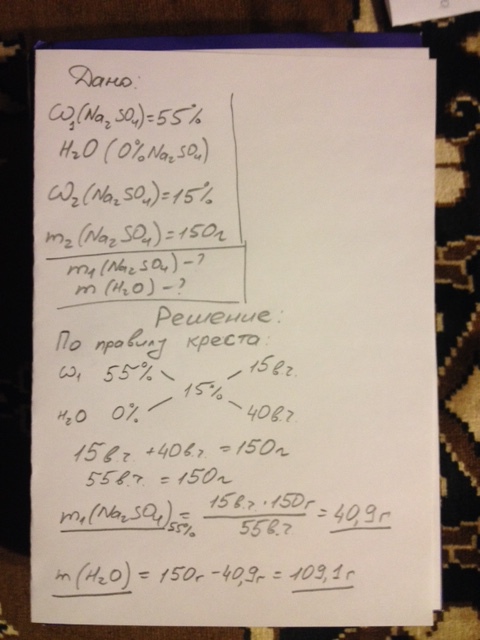 Дано:
ω₁(Na₂SO₄)=55%
H₂O (0% Na₂SO₄)
ω₂(Na₂SO₄)=15%
m₂(Na₂SO₄)=150г
m₁(Na₂SO₄)-?
m(H₂O)-?
Решение:
По правилу креста:
ω₁ 55% 15в.ч.
15%
H₂O 0% 40в.ч.
15в.ч. +40в.ч. =150г
55в.ч. =150г
m₁(Na₂SO₄)55% = 15в.ч.·150г / 55в.ч. = 40,9г
m(H₂O) = 150г-40,9г = 109,1г